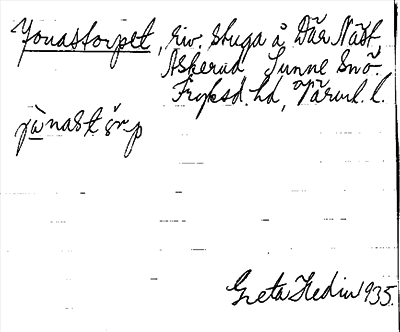 Jonastorpet, riv. stuga å Där Näst,
Askerud Sunne Snö.
Fryksd. hd, Värml. l.
jònastǒrp
Greta Hedin 1935.